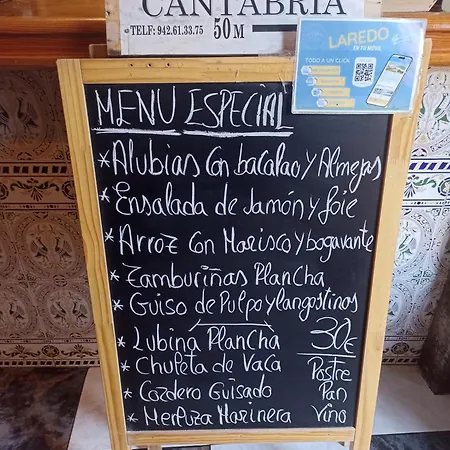 CANTABRIA
TELF: 942.61.33.75 50 M
LAREDO
EN TU MÓVIL
TODO A UN CLICK
MENU ESPECIAL
* Alubias con bacalao y Almejas
* Ensalada de Jamón y foie
* Arroz con Marisco y bogavante
* Zamburiñas Plancha
* Guiso de Pulpo y langostinos
* Lubina Plancha 30€
* Chuleta de Vaca Postre
* Cordero Guisado Pan
* Merluza Marinera Vino